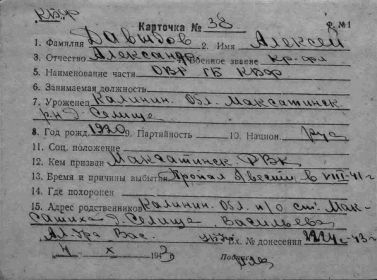 КБФ
Карточка № 38 № 1
1. Фамилия Давыдов 2. Имя Алексей
3. Отчество Александр. Военное звание кр-фл
5. Наименование части ОВР ГБ КБФ
6. Занимаемая должность
7. Уроженец Калинин. Обл. Максатинск
р-н д. Селище
8. Год рожд. 1920 9. Партийность 10. Национ. рус
11. Соц. положение
12. Кем призван Максатинск. РВК
13. Время и причины выбытия Пропал б/вести в VIII-41 г
14. Где похоронен
15. Адрес родственников Калинин. Обл. п/о ст. Мак-
сатиха д. Селище Васильева
Ал-дра Вас. № донесения
4 X 194 Подпись